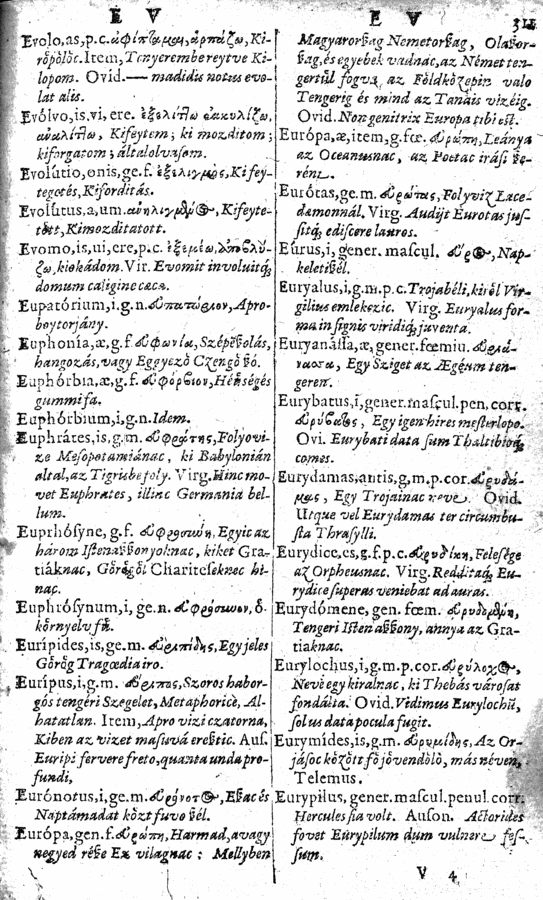 E V
Evolo, as, p.c. ἀφίπταμαι, ἁρπάζω, Ki-
rŏpŏlŏc. Item, Tenyeremberejtve Ki-
lopom. Ovid. — madidis notus evo-
lat alis.
Evólvo, is, vi, ere.
Kifeytem; ki mozditom;
kiforgatom; általolvasom.
Evolútio, onis, ge.f. Kifey-
tegetés, Kiforditás.
Evolútus, a, um. Kifeyte-
tŏtt, Kimozditatott.
Evomo, is, ui, ere, p.c. ἐξεμέω,
kiokádom. Vir. Evomit involvitq́;
domum caligine cæca.
Eupatórium, i, g.n. Apro-
boytorjány.
Euphonía, æ, g.f. ὀυφωνία, Szépßolás,
hangozás, vagy Eggyezŏ Czengŏ ßó.
Euphórbia, æ, g.f. Héßségés
gummi fa.
Euphórbium, i, g.n. Idem.
Euphrátes, is, g.m. Folyovi-
ze Mesopotamiánac, ki Babylonián
által, az Tigrisbe foly. Virg. Hinc mo-
vet Euphrates, illinc Germania bel-
lum.
Euprhósyne, g.f. Egyic az
három Istenaßßonyoknac, kiket Gra-
tiáknac, Gŏrŏgŏl Chariteseknec hi-
nac.
Euphrósynum, i, ge.n. ὀυφρόσυνον, ŏ-
kŏrnyelv fŭ.
Eurípides, is, ge.m. Egy jeles
Gŏrŏg Tragœdia iro.
Eurípus, i, g.m. Szoros habor-
gós tengéri Szegelet, Metaphoricè, Al-
hatatlan. Item, Apro vizi czatorna,
Kiben az vizet masuvá ereßtic. Aus.
Euripi fervere freto, quanta unda pro-
fundi,
Eurónotus, i, ge.m. Eßac és
Naptámadat kŏzt fuvo ßél.
Európa, gen.f. Harmad, avagy
negyed réße Ez vilagnac: Mellyben
E V
311
Magyarorßag Nemetorßag, Olaßor-
ßag, és egyebek vadnac, az Német ten-
gertŭl fogva az Fŏldkŏzepin valo
Tengerig és mind az Tanáis vizéig.
Ovid. Non genitrix Europa tibi est.
Európa, æ, item, g.fœ. Leánya
az Oceanusnac, az Poetac irási ße-
rént.
Eurótas, ge.m. Folyviz Lace-
dæmonnál. Virg. Audijt Eurotas jus-
sitq́; ediscere lauros.
Eurus, i, gener. mascul. Nap-
keleti ßél.
Euryalus, i, g.m.p.c. Trojabéli, kirŏl Vir-
gilius emlekezic. Virg. Euryalus for-
ma insignis viridiq́; juventa.
Euryanássa, æ, gener. fœmiu.
Egy Sziget az Ægéum ten-
geren.
Eurybatus, i, gener. mascul. pen. corr.
Egy igen hires mesterlopo.
Ovi. Eurybati data sum Thaltibioq́;
comes.
Eurydamas, antis, g.m.p.cor.
Egy Trojainac neve. Ovid.
Utque vel Eurydamas ter circumbu-
sta Thrasylli.
Eurydice, es, g.f.p.c. Felesége
az Orpheusnac. Virg. Redditaq́; Eu-
rydice superas veniebat ad auras.
Eurydómene, gen. fœm.
Tengeri Istenaßßony, annya az Gra-
tiaknac.
Eurylochus, i, g.m.p.cor.
Nevé egy kiralnac, ki Thebás városat
fondálta. Ovid. Vidimus Eurylochŭ,
solus data pocula fugit.
Eurymídes, is, g.m. Az Or-
jásoc kŏzŏtt fŏ jŏvendŏlŏ, más néven,
Telemus.
Eurypilus, gener. mascul. penul. corr.
Hercules fia volt. Auson. Actorides
fovet Eurypilum dum vulnere fes-
sum.
V 4